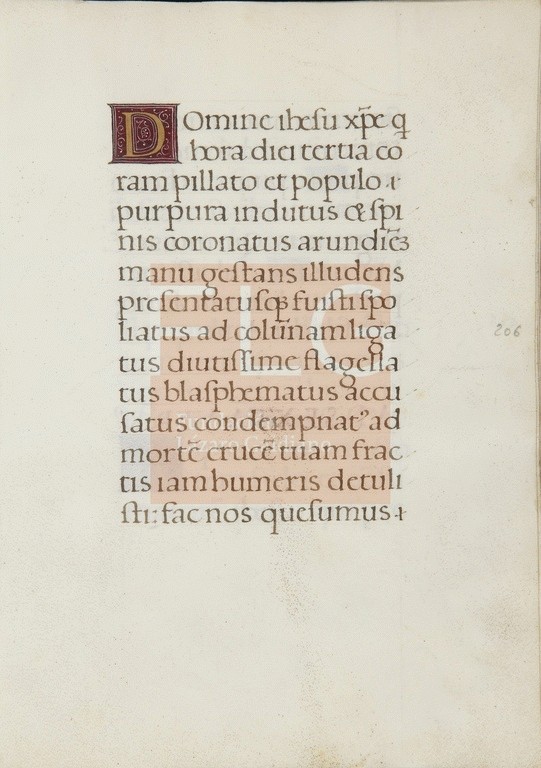 Domine ihesu xp̄e q̄
hora diei tertia co
ram pillato et populo .i.
purpura indutus & spi
nis coronatus arundinē
manu gestans illudens
presentatusq; fuisti spo
liatus ad colūnam liga
tus diutissime flagella
tus blasphematus accu
satus condempnat' ad
mortē crucē tuam frac
tis iam humeris detuli
sti: fac nos quesumus .i.
206